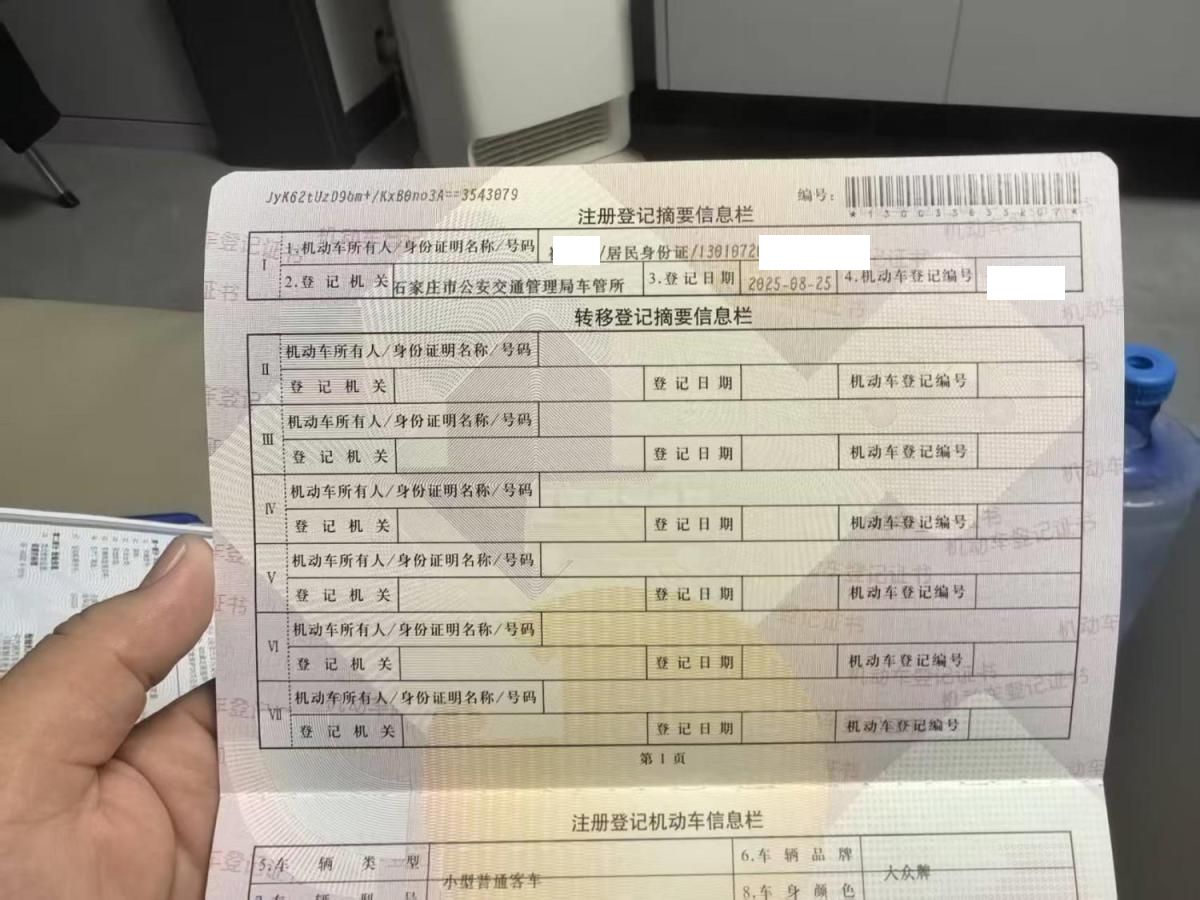 JyK62tUzD9bmt/KxB0no3A==3543079
编号:
*130033633807*
注册登记摘要信息栏
I
1.机动车所有人/身份证明名称/号码 /居民身份证/1301072
2.登记机关 石家庄市公安交通管理局车管所 3.登记日期 2025-08-25 4.机动车登记编号
转移登记摘要信息栏
II
机动车所有人/身份证明名称/号码
登记机关 登记日期 机动车登记编号
III
机动车所有人/身份证明名称/号码
登记机关 登记日期 机动车登记编号
IV
机动车所有人/身份证明名称/号码
登记机关 登记日期 机动车登记编号
V
机动车所有人/身份证明名称/号码
登记机关 登记日期 机动车登记编号
VI
机动车所有人/身份证明名称/号码
登记机关 登记日期 机动车登记编号
VII
机动车所有人/身份证明名称/号码
登记机关 登记日期 机动车登记编号
第1页
注册登记机动车信息栏
5.车辆类型 小型普通客车 6.车辆品牌 大众牌
8.车身颜色